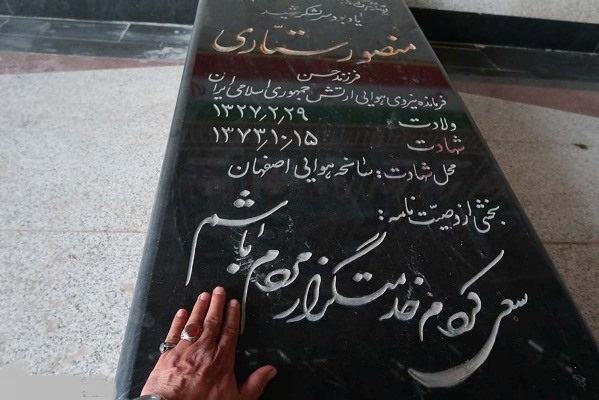 یادبود سرلشکر شهید
منصور ستّاری
فرزند حسن
فرمانده نیروی هوایی ارتش جمهوری اسلامی ایران
ولادت ۱۳۲۷٫۲٫۲۹
شهادت ۱۳۷۳٫۱۰٫۱۵
محل شهادت : سانحه هوایی اصفهان
بخشی از وصیّت نامه :
سعی کردم خدمتگزار مردم باشم